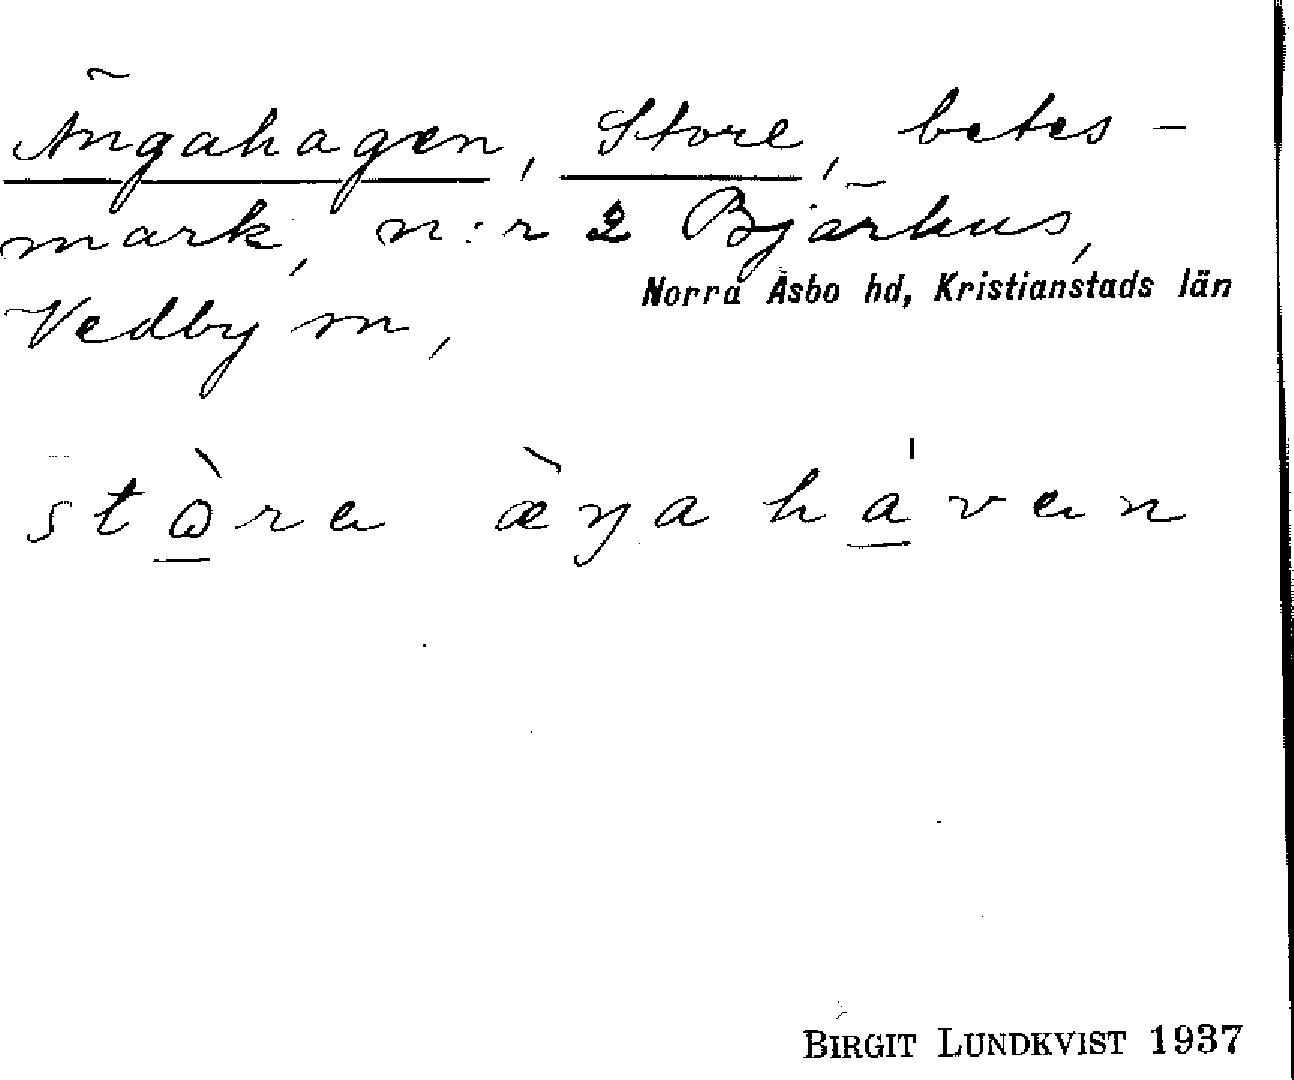 Ängahagen, Store, betes-
mark, n:r 2 Bjärhus,
Norra Åsbo hd, Kristianstads län
Vedby sn,
stò̱ra æ̀ŋa há̱van
BIRGIT LUNDKVIST 1937